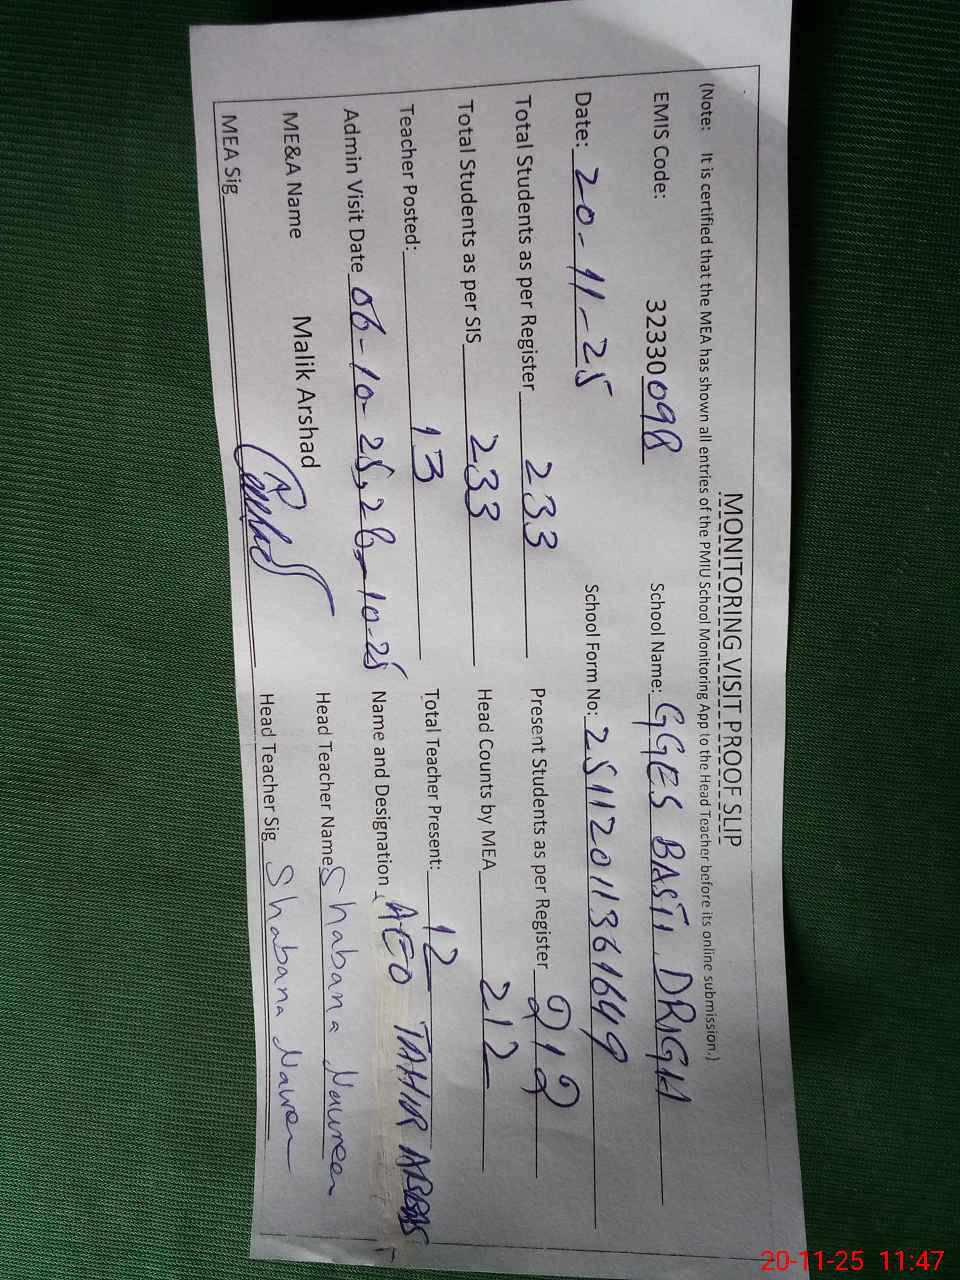 MONITORING VISIT PROOF SLIP
(Note: It is certified that the MEA has shown all entries of the PMIU School Monitoring App to the Head Teacher before its online submission.)
EMIS Code: 32330098 School Name: GGES BASTI DRIGH
Date: 20-11-25 School Form No: 251120113616449
Total Students as per Register 233 Present Students as per Register 212
Total Students as per SIS 233 Head Counts by MEA 212
Teacher Posted: 13 Total Teacher Present: 12
Admin Visit Date 06-10-25, 28-10-25 Name and Designation AEO TAHIR
ME&A Name Malik Arshad Head Teacher Name Shabana Naureen
MEA Sig Head Teacher Sig Shabana Nauren
20-11-25 11:47